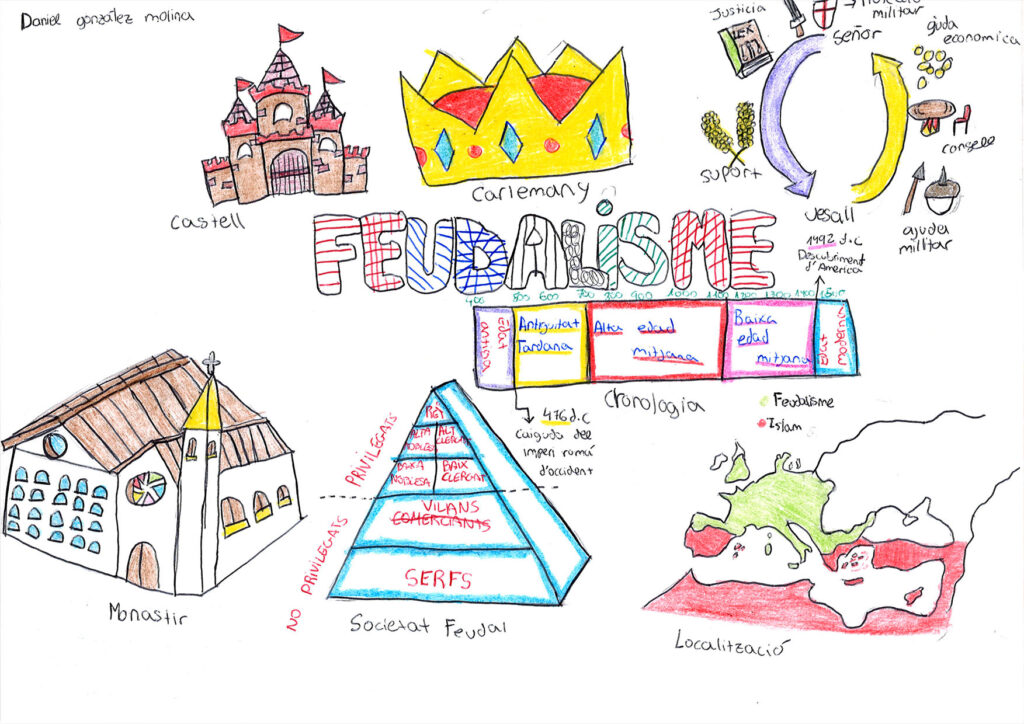 Daniel gonzález molina
Justicia
LEX
militar
señor
ajuda
economica
consell
ajuda
militar
vesall
suport
Castell
Carlemany
FEUDALiSME
1492 d.C
Descubriment
d'America
400 500 600 700 800 900 1000 1100 1200 1300 1400 1500
Edat
antigua
Antiguitat
Tardana
Alta edad
mitjana
Baixa
edad
mitjana
Edat
moderna
Cronologia
476 d.C
Caiguda del
imperi romà
d'occident
Feudalisme
Islam
PRIVILEGIATS
NO PRIVILEGATS
REY
ALTA
NOBLESA
ALT
CLERGAT
BAIXA
NOBLESA
BAIX
CLERGAT
VILANS
COMERCIANTS
SERFS
Societat Feudal
Monastir
Localització